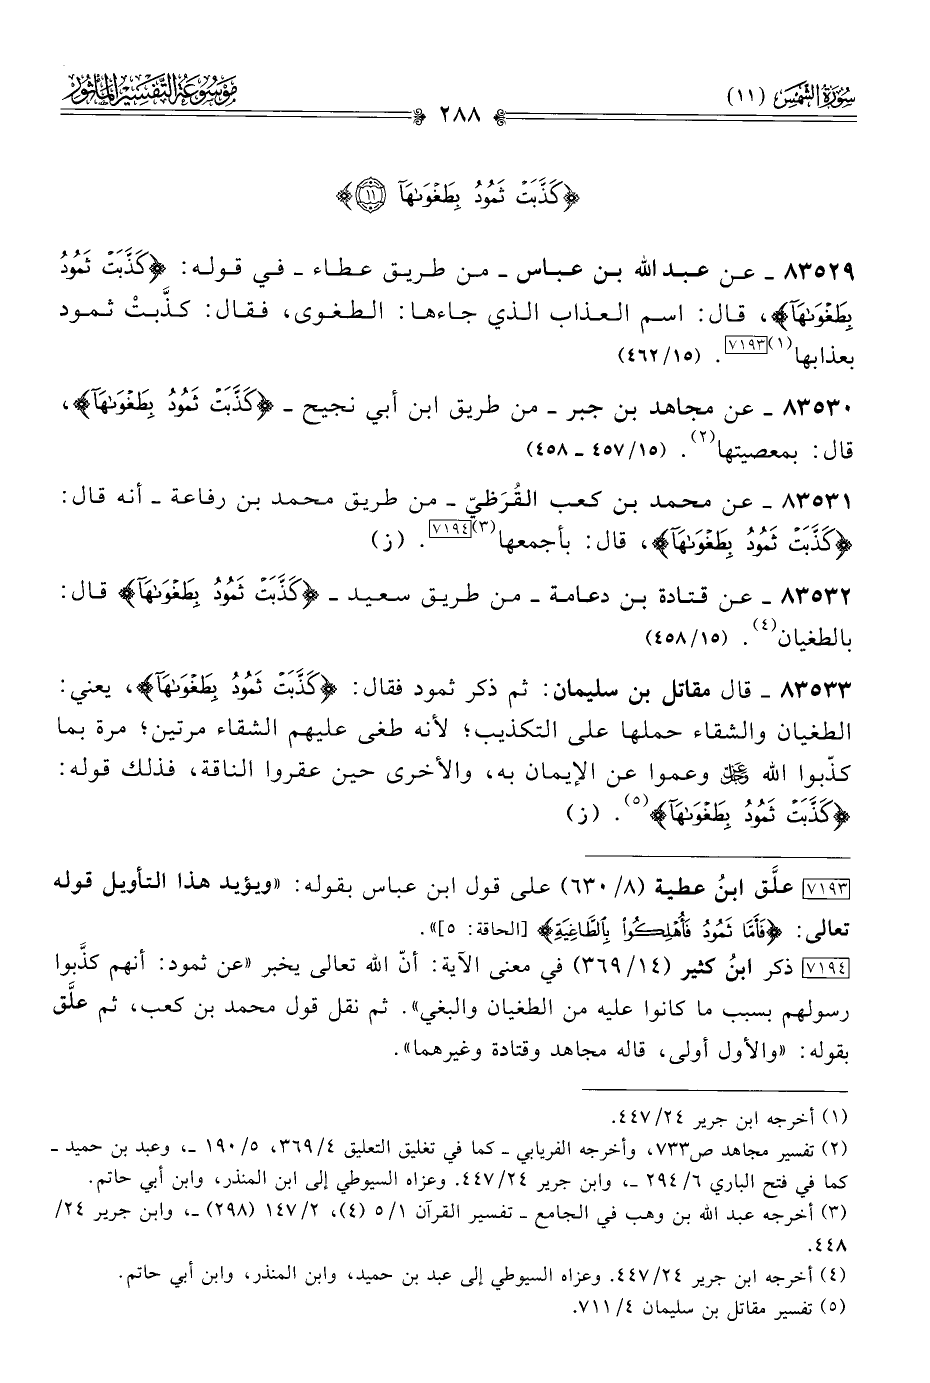 سورة الشمس (١١)
موسوعة التفسير المأثور
٢٨٨
﴿كَذَّبَتْ ثَمُودُ بِطَغْوَىٰهَآ ١١﴾
٨٣٥٢٩ ـ عن عبد الله بن عباس ـ من طريق عطاء ـ في قوله: ﴿كَذَّبَتْ ثَمُودُ
بِطَغْوَىٰهَآ﴾، قال: اسم العذاب الذي جاءها: الطغوى، فقال: كذَّبتْ ثمود
بعذابها(١)[٧١٩٣]. (١٥/٤٦٢)
٨٣٥٣٠ ـ عن مجاهد بن جبر ـ من طريق ابن أبي نجيح ـ ﴿كَذَّبَتْ ثَمُودُ بِطَغْوَىٰهَآ﴾،
قال: بمعصيتها(٢). (١٥/٤٥٧ ـ ٤٥٨)
٨٣٥٣١ ـ عن محمد بن كعب القُرَظيّ ـ من طريق محمد بن رفاعة ـ أنه قال:
﴿كَذَّبَتْ ثَمُودُ بِطَغْوَىٰهَآ﴾، قال: بأجمعها(٣)[٧١٩٤]. (ز)
٨٣٥٣٢ ـ عن قتادة بن دعامة ـ من طريق سعيد ـ ﴿كَذَّبَتْ ثَمُودُ بِطَغْوَىٰهَآ﴾ قال:
بالطغيان(٤). (١٥/٤٥٨)
٨٣٥٣٣ ـ قال مقاتل بن سليمان: ثم ذكر ثمود فقال: ﴿كَذَّبَتْ ثَمُودُ بِطَغْوَىٰهَآ﴾، يعني:
الطغيان والشقاء حملها على التكذيب؛ لأنه طغى عليهم الشقاء مرتين؛ مرة بما
كذّبوا الله ﷿ وعموا عن الإيمان به، والأخرى حين عقروا الناقة، فذلك قوله:
﴿كَذَّبَتْ ثَمُودُ بِطَغْوَىٰهَآ﴾(٥). (ز)
[٧١٩٣] علَّق ابنُ عطية (٨/٦٣٠) على قول ابن عباس بقوله: «ويؤيد هذا التأويل قوله
تعالى: ﴿فَأَمَّا ثَمُودُ فَأُهْلِكُوا۟ بِٱلطَّاغِيَةِ﴾ [الحاقة: ٥]».
[٧١٩٤] ذكر ابنُ كثير (١٤/٣٦٩) في معنى الآية: أنّ الله تعالى يخبر «عن ثمود: أنهم كذَّبوا
رسولهم بسبب ما كانوا عليه من الطغيان والبغي». ثم نقل قول محمد بن كعب، ثم علَّق
بقوله: «والأول أولى، قاله مجاهد وقتادة وغيرهما».
(١) أخرجه ابن جرير ٢٤/٤٤٧.
(٢) تفسير مجاهد ص٧٣٣، وأخرجه الفريابي ـ كما في تغليق التعليق ٤/٣٦٩، ٥/١٩٠ ـ، وعبد بن حميد ـ
كما في فتح الباري ٦/٢٩٤ ـ، وابن جرير ٢٤/٤٤٧. وعزاه السيوطي إلى ابن المنذر، وابن أبي حاتم.
(٣) أخرجه عبد الله بن وهب في الجامع ـ تفسير القرآن ١/٥ (٤)، ٢/١٤٧ (٢٩٨) ـ، وابن جرير ٢٤/
٤٤٨.
(٤) أخرجه ابن جرير ٢٤/٤٤٧. وعزاه السيوطي إلى عبد بن حميد، وابن المنذر، وابن أبي حاتم.
(٥) تفسير مقاتل بن سليمان ٤/٧١١.